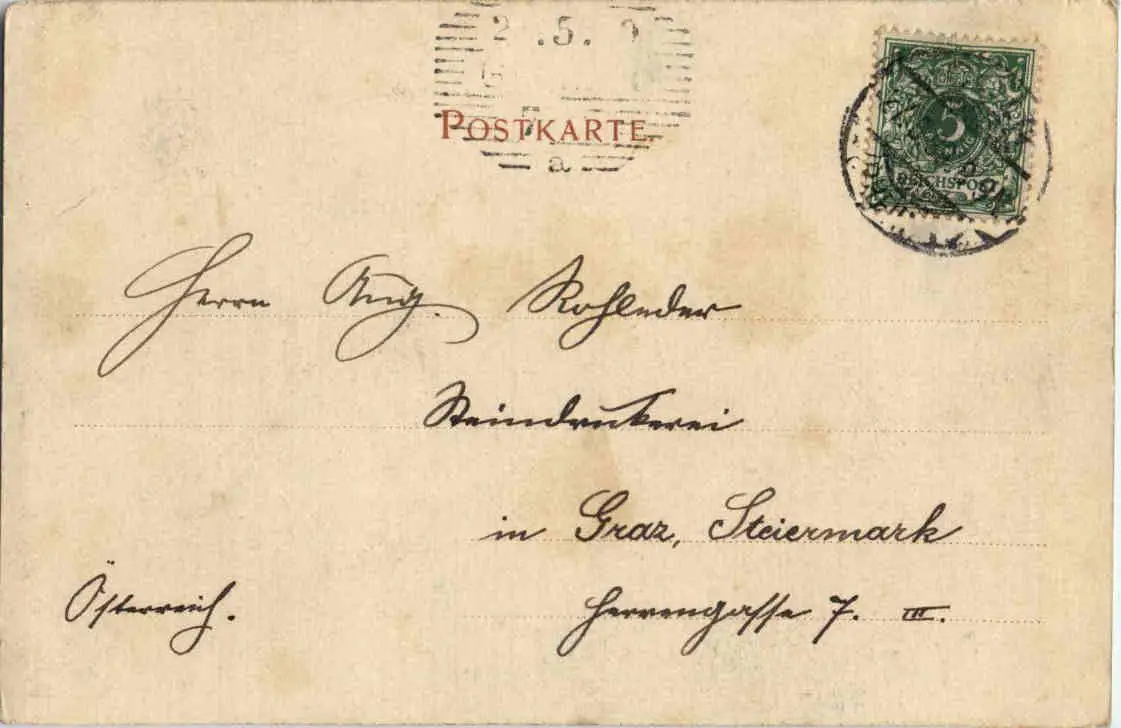 2 .5. 0
G
POSTKARTE.
7
a
5
REICHSPOST
Herrn Aug. Rohleder
Steindruckerei
in Graz, Steiermark
Österreich. Herrengasse 7. III.